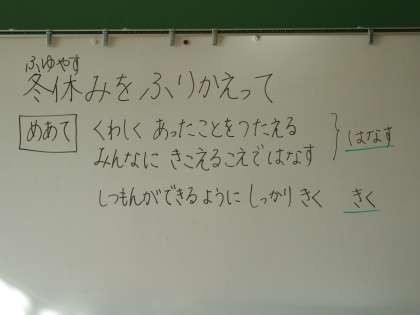 ふゆやす
冬休みをふりかえって
めあて くわしく あったことをつたえる
みんなに きこえるこえで はなす
はなす
しつもんができるように しっかり きく きく